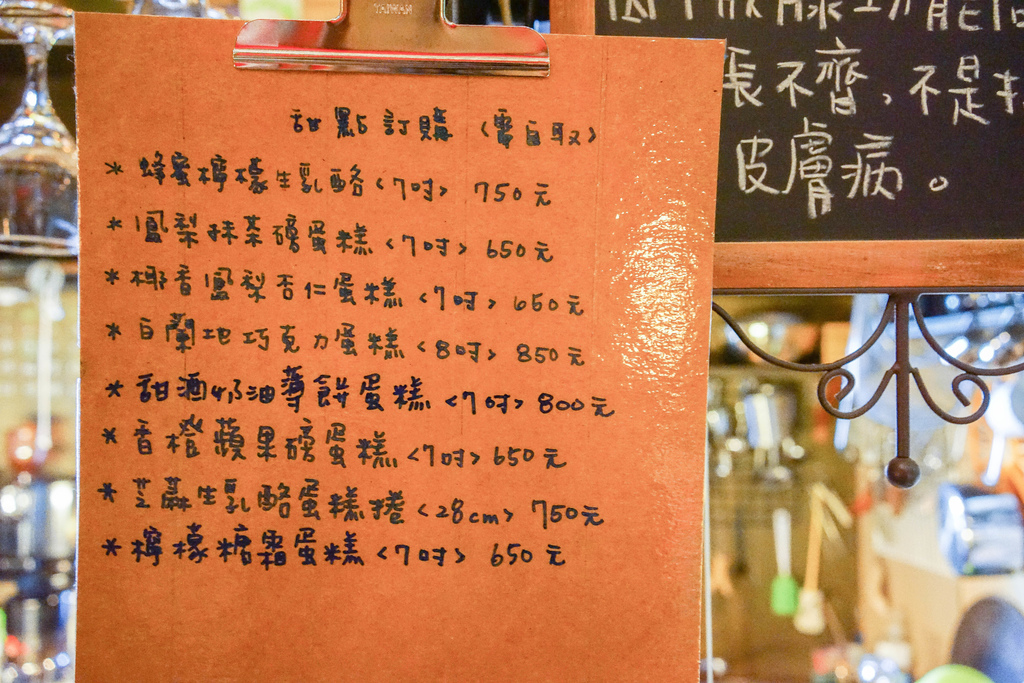 甜點訂購（需自取）
* 蜂蜜檸檬生乳酪<7吋> 750元
* 鳳梨抹茶磅蛋糕<7吋> 650元
* 椰香鳳梨杏仁蛋糕<7吋> 650元
* 白蘭地巧克力蛋糕<8吋> 850元
* 甜酒奶油薄餅蛋糕<7吋> 800元
* 香橙蘋果磅蛋糕<7吋> 650元
* 芝麻生乳酪蛋糕捲<28cm> 750元
* 檸檬糖霜蛋糕<7吋> 650元
張不齊，不是
皮膚病。